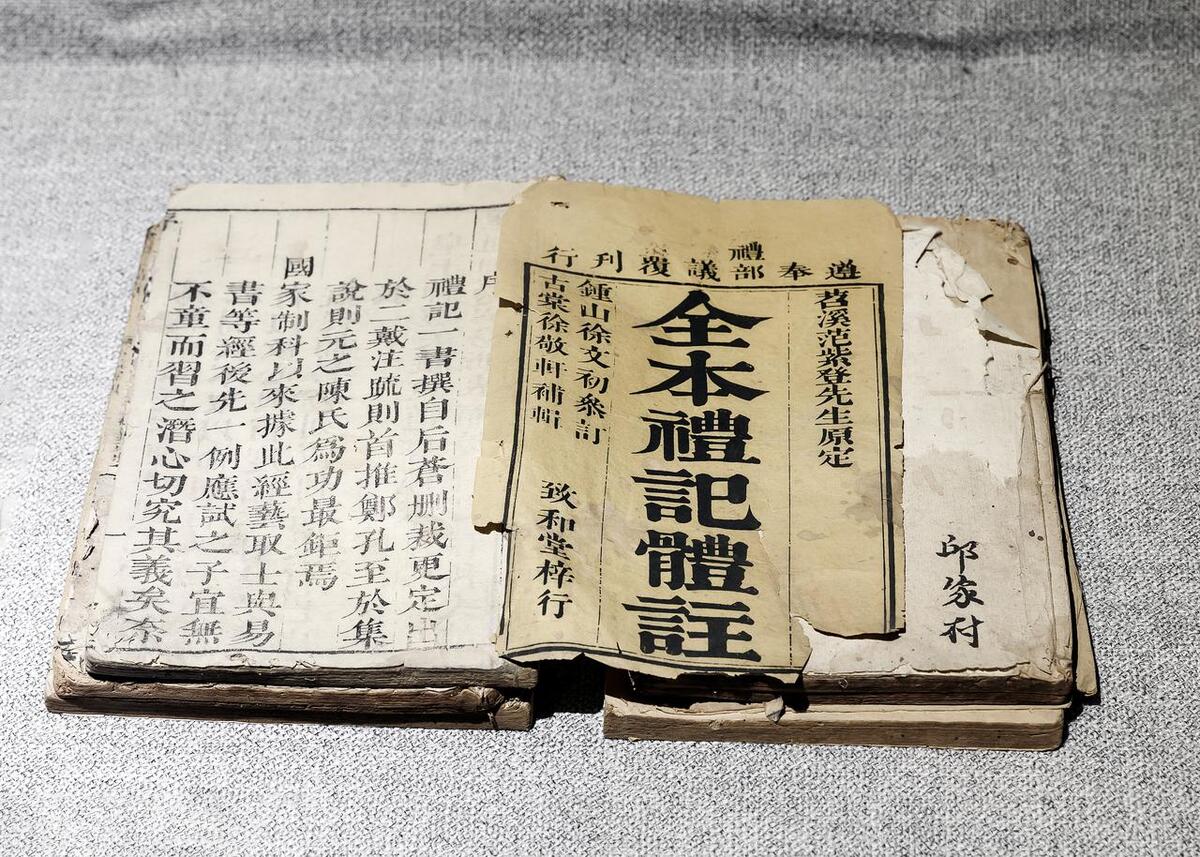 邱家村
遵奉禮部議覆刊行
苕溪范紫登先生原定
全本禮記體註
鍾山徐文初叅訂
古棠徐敬軒補輯
致和堂梓行
序
禮記一書撰自后蒼删裁更定出
於二戴注疏則首推鄭孔至於集
說則元之陳氏爲功最鉅焉
國家制科以來據此經藝取士與易
書等經後先一例應試之子宜無
不童而習之潛心切究其義矣奈